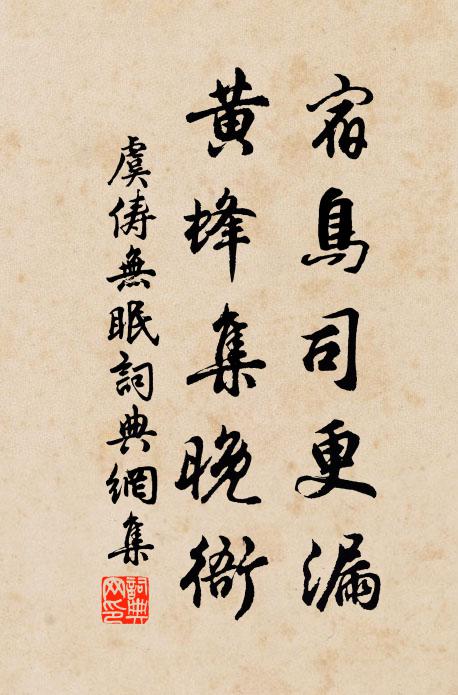 宿鳥司更漏
黃蜂集晚衙
虞儔無眠詞典網集
詞典網印